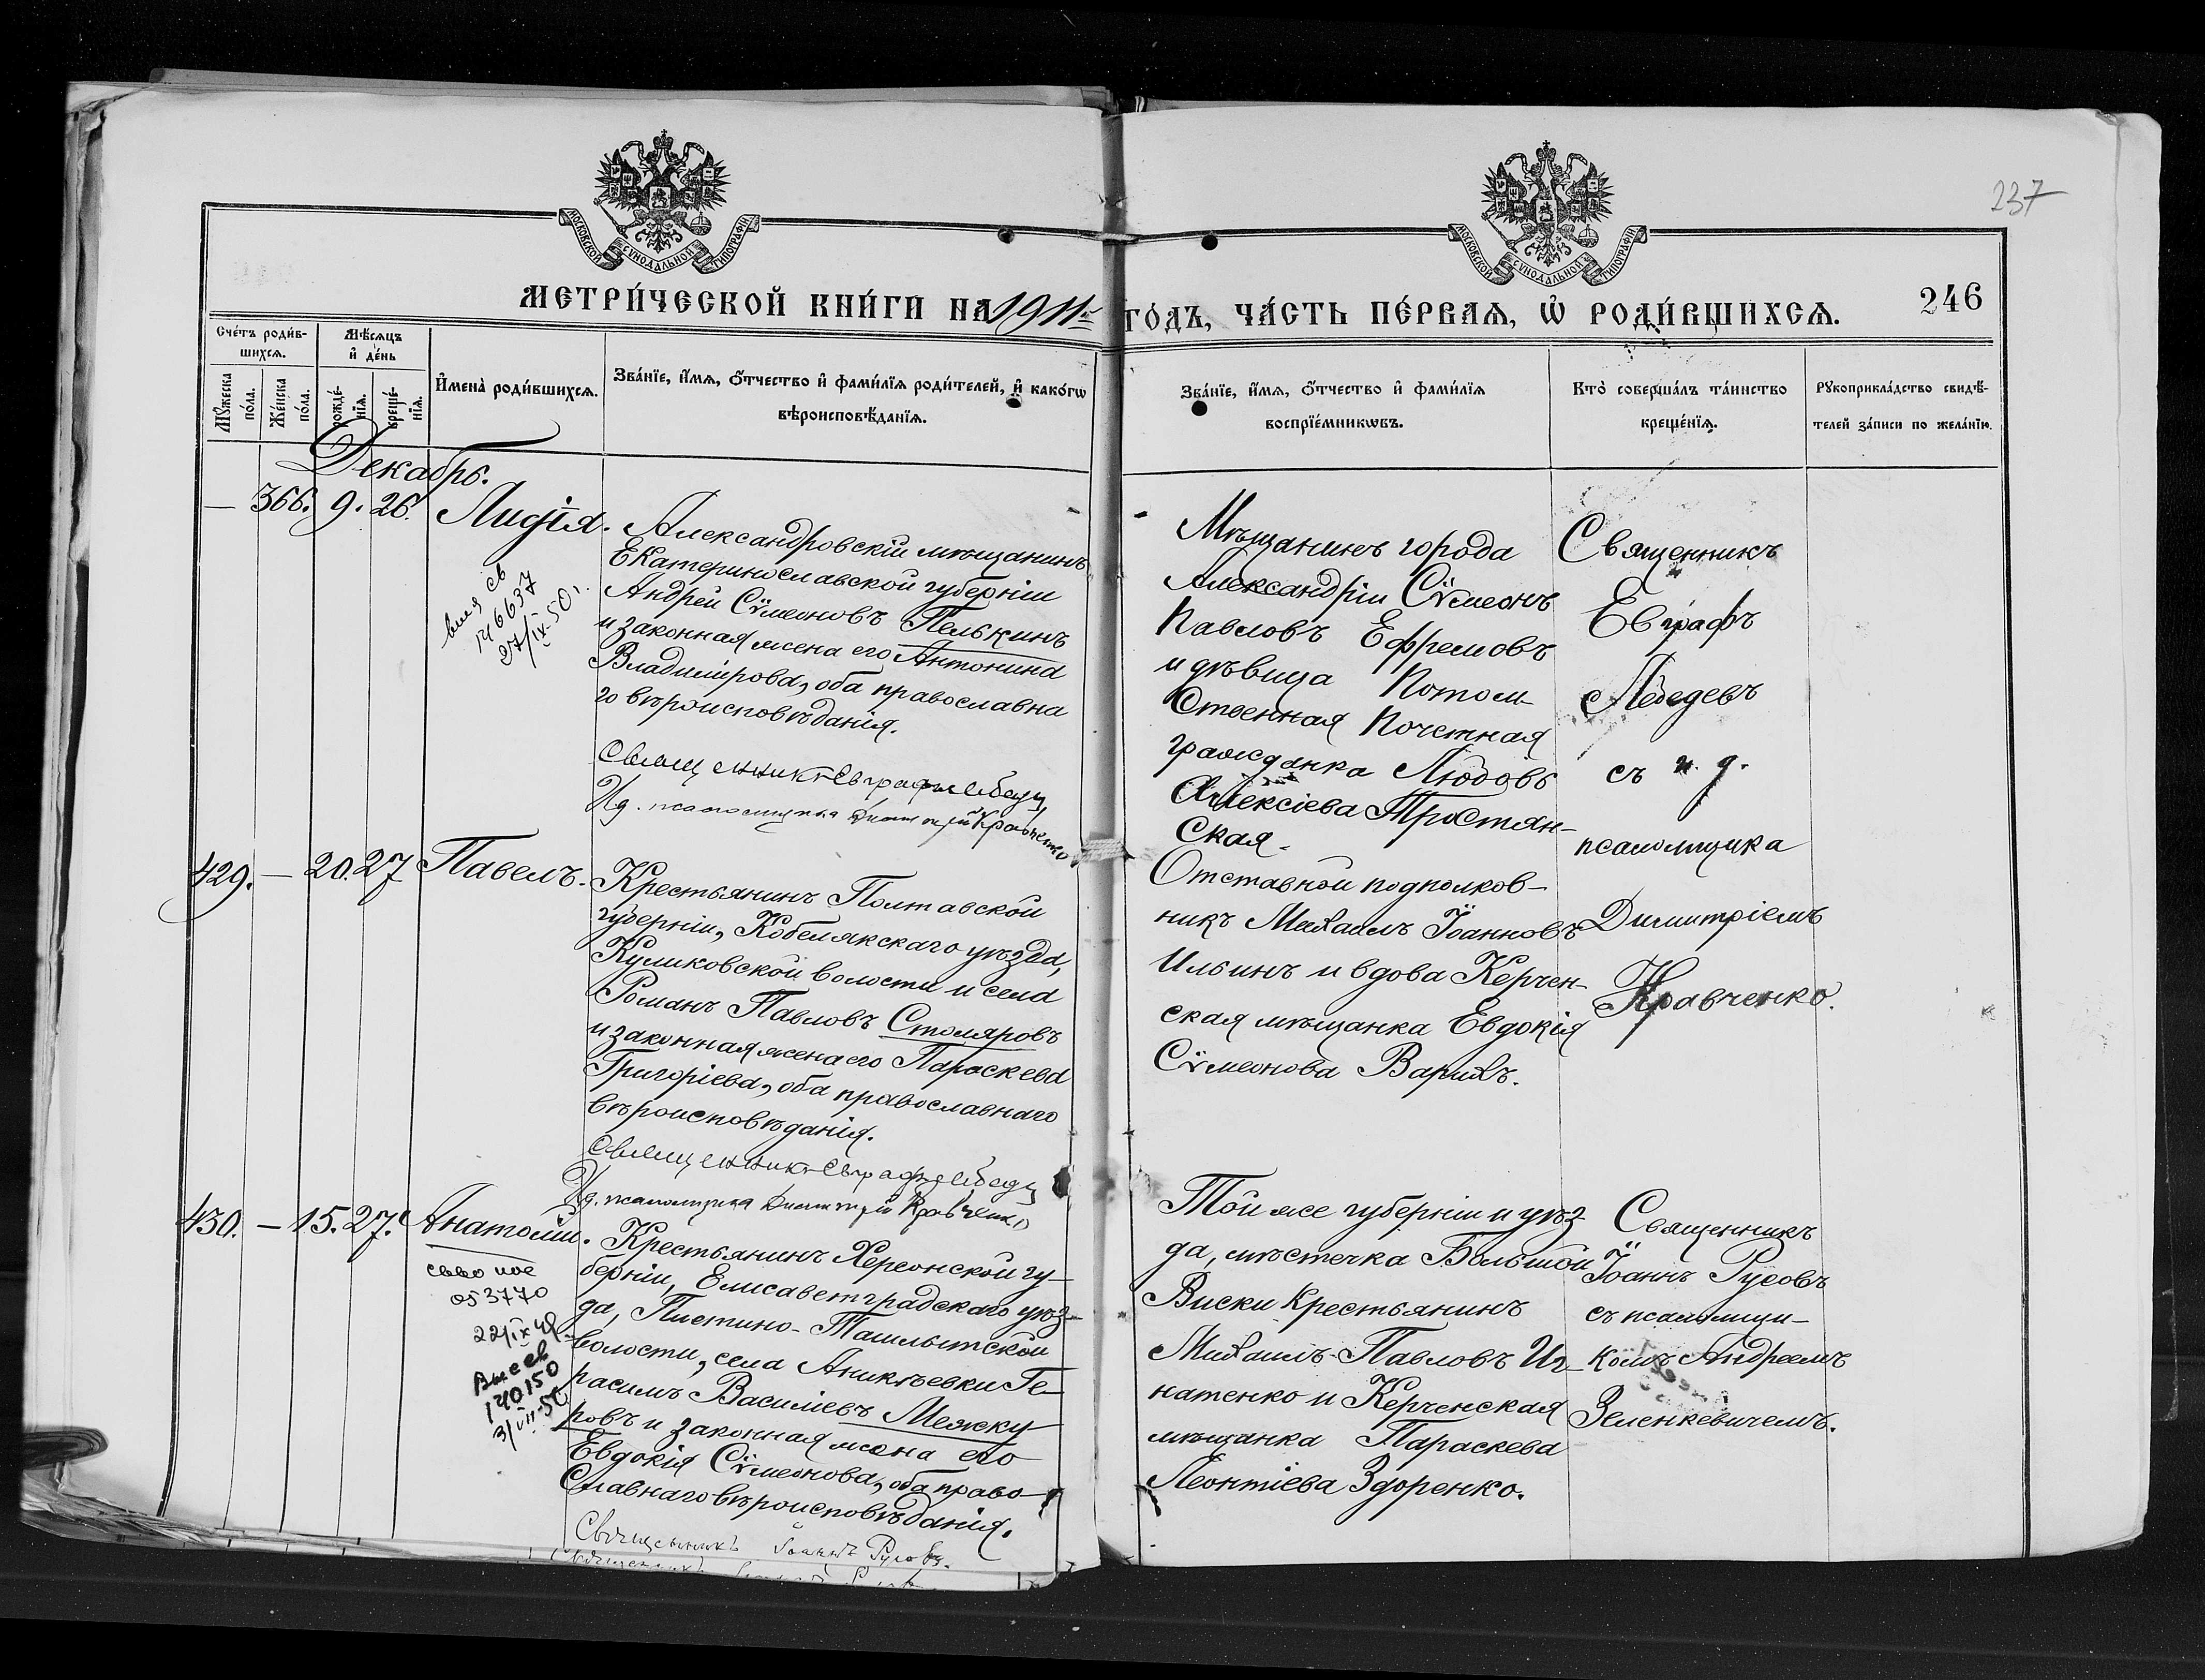 237
МОСКОВСКОЙ СѴНОДАЛЬНОЙ ТИПОГРАФІИ
МОСКОВСКОЙ СѴНОДАЛЬНОЙ ТИПОГРАФІИ
МЕТРИ́ЧЕСКОЙ КНИ́ГИ НА 1911й ГО́ДЪ, ЧА́СТЬ ПЕ́РВАѦ, Ѡ҆ РОДИ́ВШИХСѦ.
246
Сче́тъ роди́в-
шихсѧ.
Мѣ́сѧцъ
и҆ де́нь
Мꙋ́жеска
по́ла.
Же́нска
по́ла.
рожде́-
нїѧ.
креще́-
нїѧ.
И҆мена̀ роди́вшихсѧ.
Зва́нїе, и҆́мѧ, ѻ҆́тчество и҆ фами́лїѧ роди́телей, и҆ како́гѡ
вѣроисповѣ́данїѧ.
Зва́нїе, и҆́мѧ, ѻ҆́тчество и҆ фами́лїѧ
воспрїе́мникѡвъ.
Кто̀ соверша́лъ та́инство
креще́нїѧ.
Рꙋкоприкла́дство свидѣ́-
телей за́писи по жела́нїю.
Декабрь.
— 366. 9. 26. Лидія.
Александровскій мѣщанинъ
Екатеринославской губерніи
Андрей Сѵмеоновъ Пелькинъ
и законная жена его Антонина
Владимірова, оба православна
го вѣроисповѣданія.
Священникъ Евграфъ Лебедев
И д. псаломщика Димитрій Кравченко
св
146637
27/IX-50г.
Мѣщанинъ города
Александріи Сѵмеонъ
Павловъ Ефремовъ
и дѣвица Потом-
ственная Почетная
гражданка Любовь
Алексіева Тростян-
ская.
Священникъ
Евграфъ
Лебедевъ
съ и. д.
псаломщика
Димитріемъ
Кравченко.
429. — 20. 27 Павелъ.
Крестьянинъ Полтавской
губерніи, Кобелякскаго уѣзда,
Куликовской волости и села
Романъ Павловъ Столяровъ
и законная жена его Параскева
Григоріева, оба православнаго
вѣроисповѣданія.
Священникъ Евграфъ Лебедев
И д. псаломщика Димитрій Кравченко
Отставной подполков-
никъ Михаилъ Іоанновъ
Ильинъ и вдова Керчен-
ская мѣщанка Евдокія
Сѵмеонова Варихъ.
430. — 15. 27. Анатолій.
Крестьянинъ Херсонской гу-
берніи, Елисаветградскаго уѣз-
да, Плетино-Ташлыкской
волости, села Аникѣевки Ге-
расимъ Василіевъ Межску
ровъ и законная жена его
Евдокія Сѵмеонова, оба право-
славнаго вѣроисповѣданія.
Священникъ Іоаннъ Русовъ.
053770
140150
3/VII-50
Той же губерніи и уѣз-
да, мѣстечка Большой
Виски крестьянинъ
Михаилъ Павловъ Иг-
натенко и Керченская
мѣщанка Параскева
Леонтіева Здоренко.
Священникъ
Іоаннъ Русовъ
съ псаломщи-
комъ Андреемъ
Зеленкевичемъ.